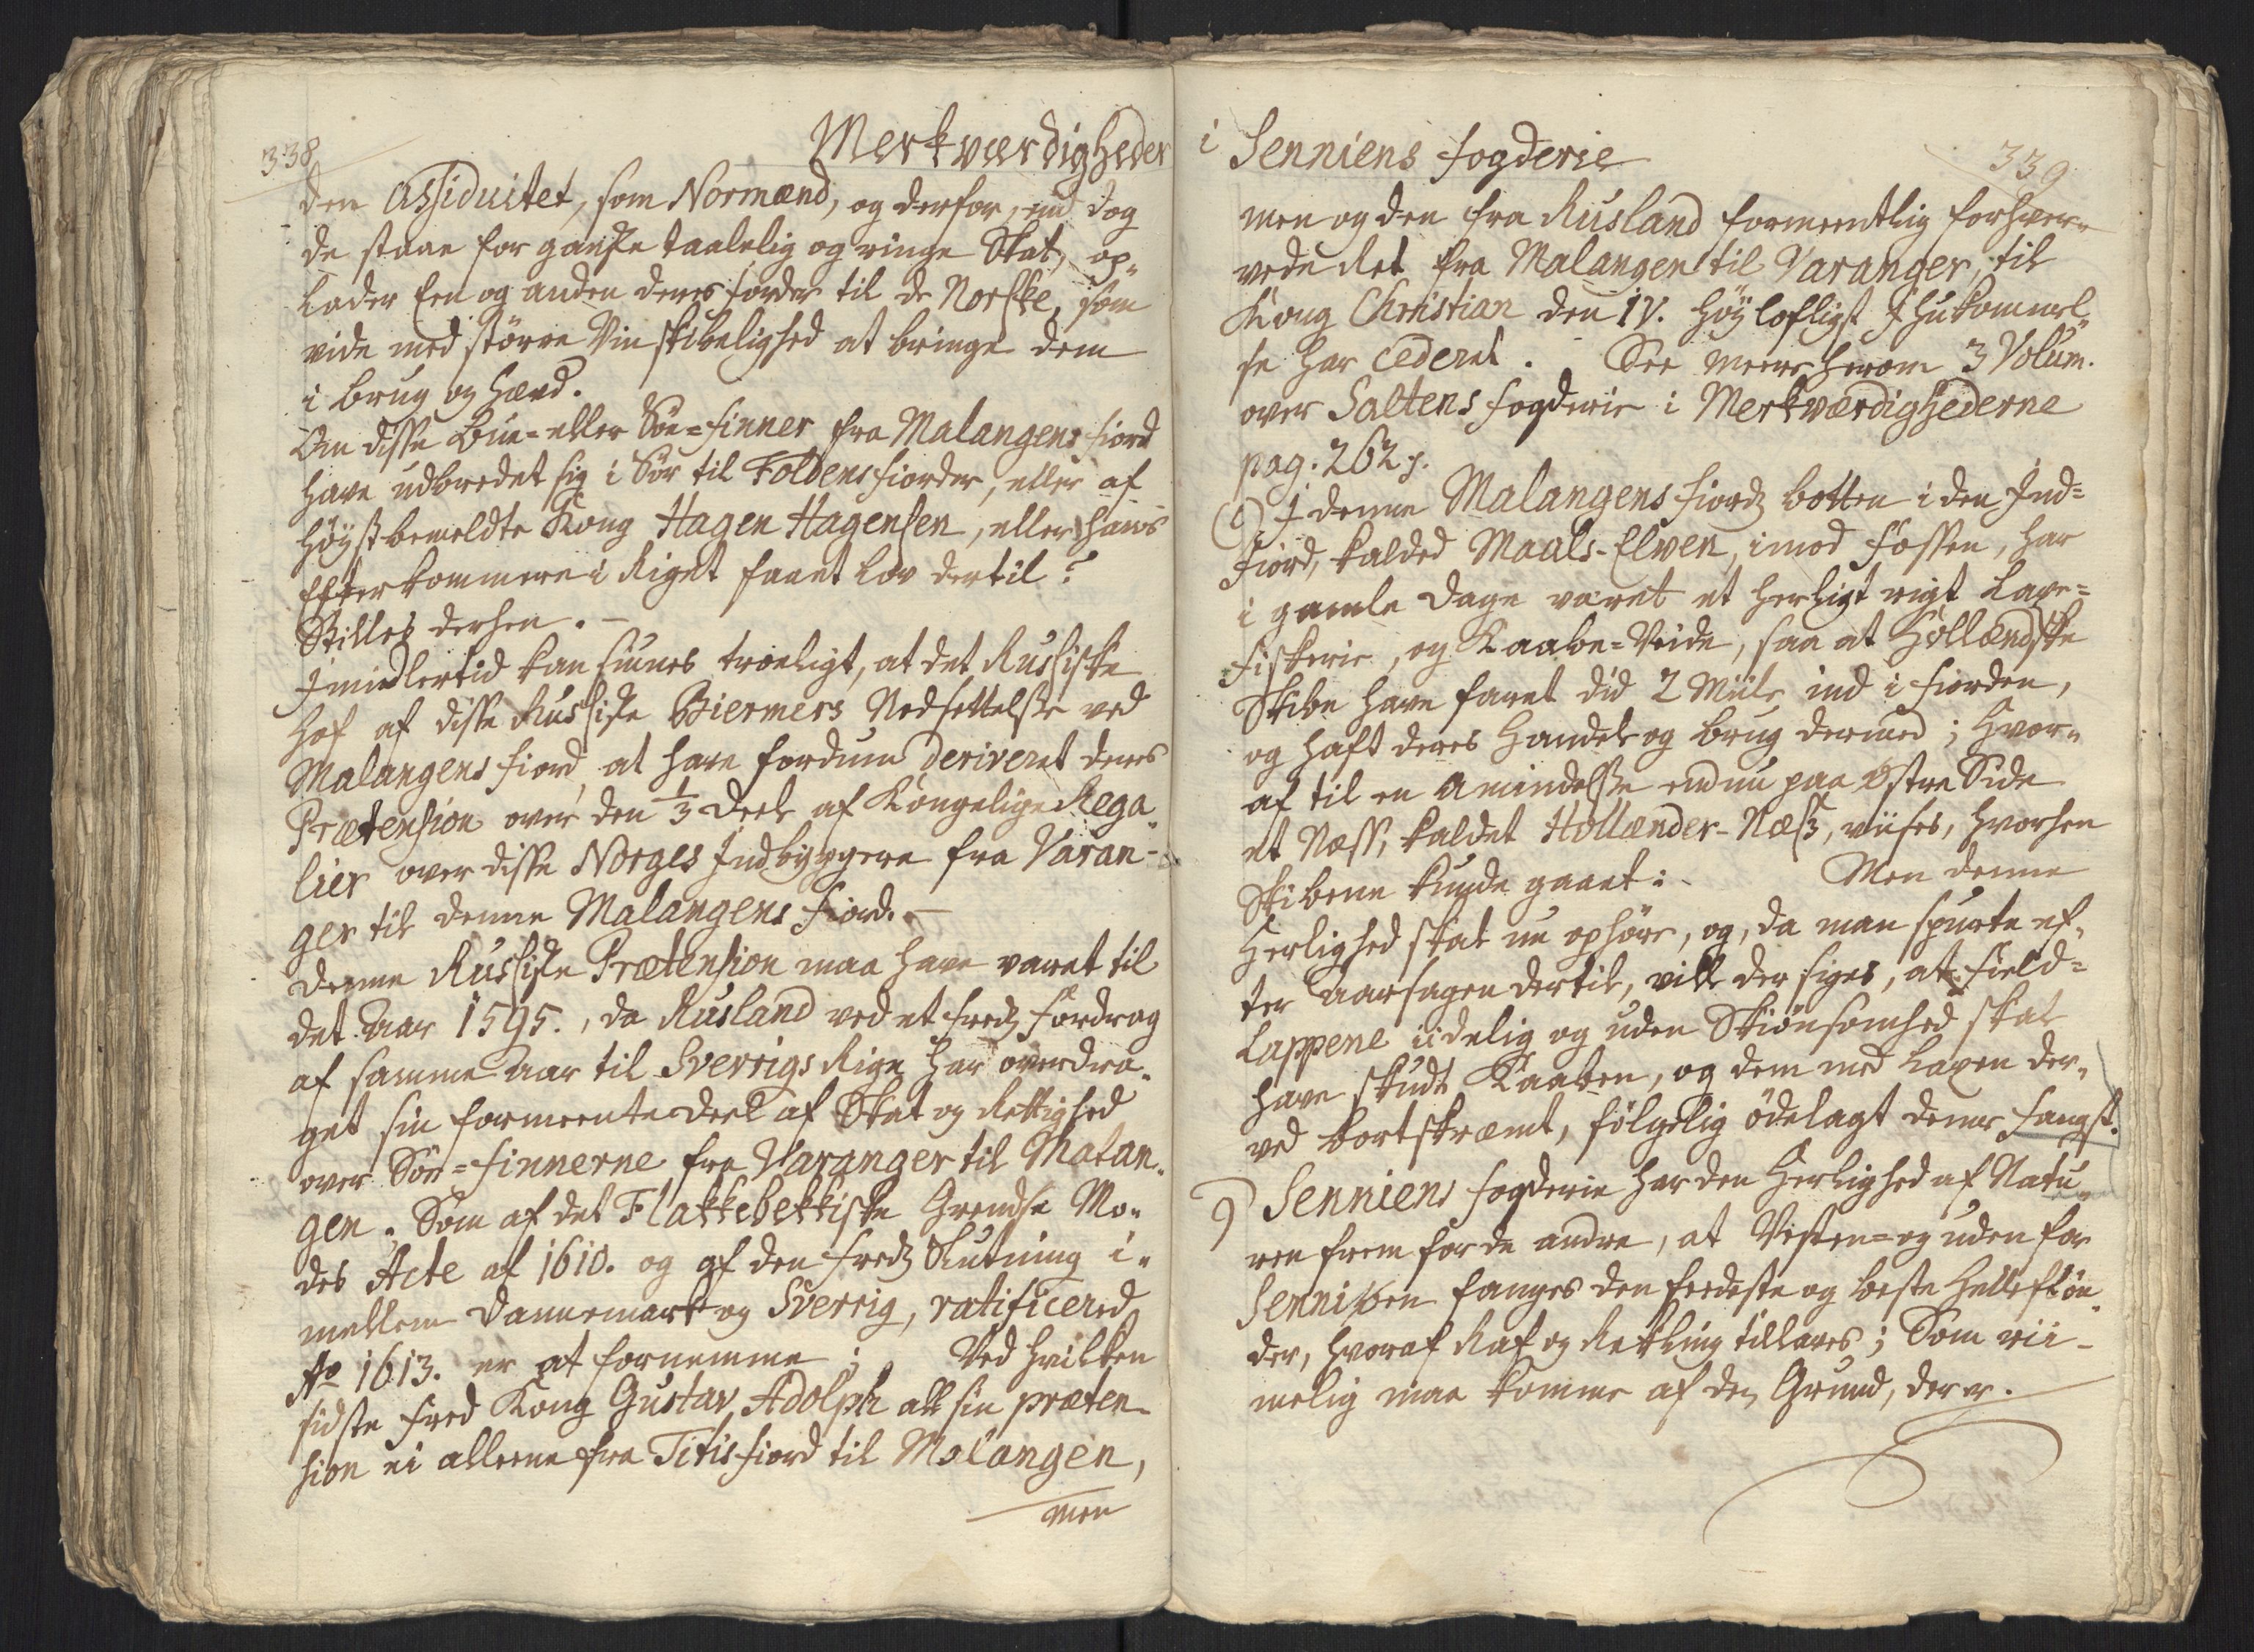 338
Merkværdigheder
den Assiduitet, som Normænd, og derfor, end dog
de staae for ganske taalelig og ringe Skat, op-
lader Een og anden deres Jorder til de Norske, som
vide med större Vinskibelighed at bringe dem
i brug og Hævd.
Om disse Bue- eller Söe-Finner fra Malangens fiord
have udbredet sig i Sör til Foldens fiorder, eller af
höyst bemeldte Kong Hagen Hagensen, eller hans
Efterkommere i Riget faaet Lov dertil?
Stilles derhen. -
Imidlertid kan siunes troeligt, at det Russiske
Hof af disse Russiske Biermers Nedsettelse ved
Malangens fiord, at have fordum deriveret deres
Prætension over den 1/3 Deel af Kongelige Rega-
lier over disse Norges Indbyggere fra Varan-
ger til denne Malangens fiord. -
Denne Russiske Prætension maa have varet til
det Aar 1595., da Rusland ved et freds Fordrag
af samme Aar til Sverrigs Rige har overdra-
get sin formeente Deel af Skat og Rettighed
over Söe-Finnerne fra Varanger til Malan-
gen; Som af det Flakkebekkiske Grendse Mo-
des Acte af 1610. og af den freds Slutning i-
mellem Dannemark og Sverrig, ratificered
Ao 1613. er at fornemme; Ved hvilken
sidste fred Kong Gustav Adolph all sin præten-
sion ei alleene fra Titisfiord til Malangen,
men
i Senniens fogderie
339
men og den fra Rusland formeentlig forhver-
vede Ret fra Malangen til Varanger, til
Kong Christian den IV. Höylofligst Ihukommel-
se har cederet. See meere herom 3 Volum.
over Saltens fogderie i Merkværdighederne
pag. 262 f.
I denne Malangens fiords botten i den Ind-
fiord, kalded Maals-Elven, imod Fossen, har
i gamle Dage været et herligt rigt Laxe-
fiskerie, og Kaabe-Veide, saa at Hollændske
Skibe have faret did 2 Miile ind i fiorden,
og haft deres Handel og brug dermed; Hvor-
af til en Amindelse endnu paa Östre Side
et Næss, kaldet Hollænder-Næss, viises, hvorhen
Skibene kunde gaaet: Men denne
Herlighed skal nu ophöre, og, da man spurte ef-
ter Aarsagen dertil, vill der siges, at Field-
Lappene iidelig og uden Skiönsomhed skal
have skudt Kaaben, og dem med Laxen der-
ved bortskræmt, fölgelig ödelagt denne fangst.
9) Senniens fogderie har den Herlighed af Natu-
ren frem for de andre, at Vesten- og uden for
Sennien fanges den feedeste og beste Helleflön-
der, hvoraf Raf og Rekling tillaves; Som rii-
melig maa komme af den Grund, der er.